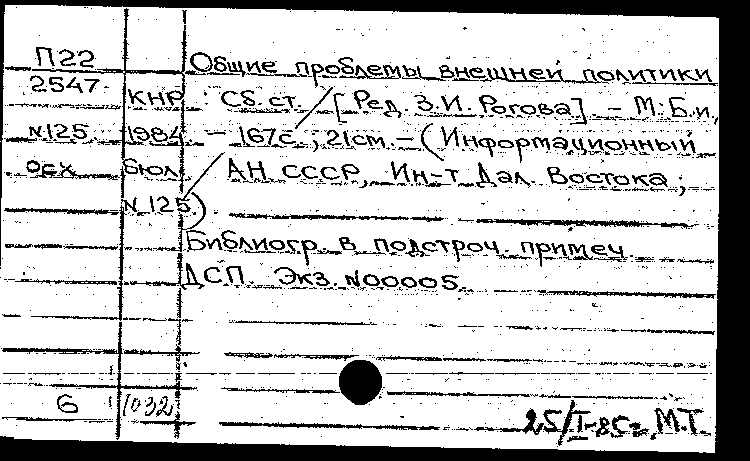 П22 Общие проблемы внешней политики
2547 КНР : Сб. ст. / [Ред. З.И. Рогова] – М.: Б.и.,
N125 1984. – 167с.; 21см. – (Информационный
осх бюл. / АН СССР, Ин-т Дал. Востока;
N 125)
Библиогр. в подстроч. примеч.
ДСП. Экз. N00005.
6 1032
25/I-85г. М.Т.